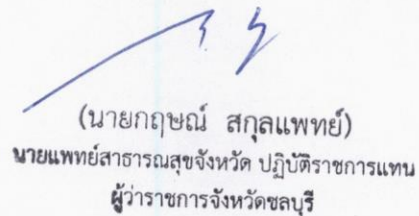 (นายกฤษณ์ สกุลแพทย์)
นายแพทย์สาธารณสุขจังหวัด ปฏิบัติราชการแทน
ผู้ว่าราชการจังหวัดชลบุรี